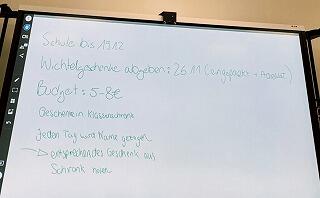 Schule bis 19.12
Wichtelgeschenke abgeben: 26.11 (eingepackt + Adressat)
Budget: 5-8€
Geschenke in Klassenschrank
Jeden Tag wird Name gezogen
→ entsprechendes Geschenk aus
Schrank holen